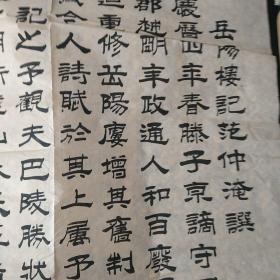 岳陽樓記范仲淹撰
慶曆四年春滕子京謫守
郡越明年政通人和百廢
重修岳陽樓增其舊制
今人詩賦於其上屬予
記之予觀夫巴陵勝狀